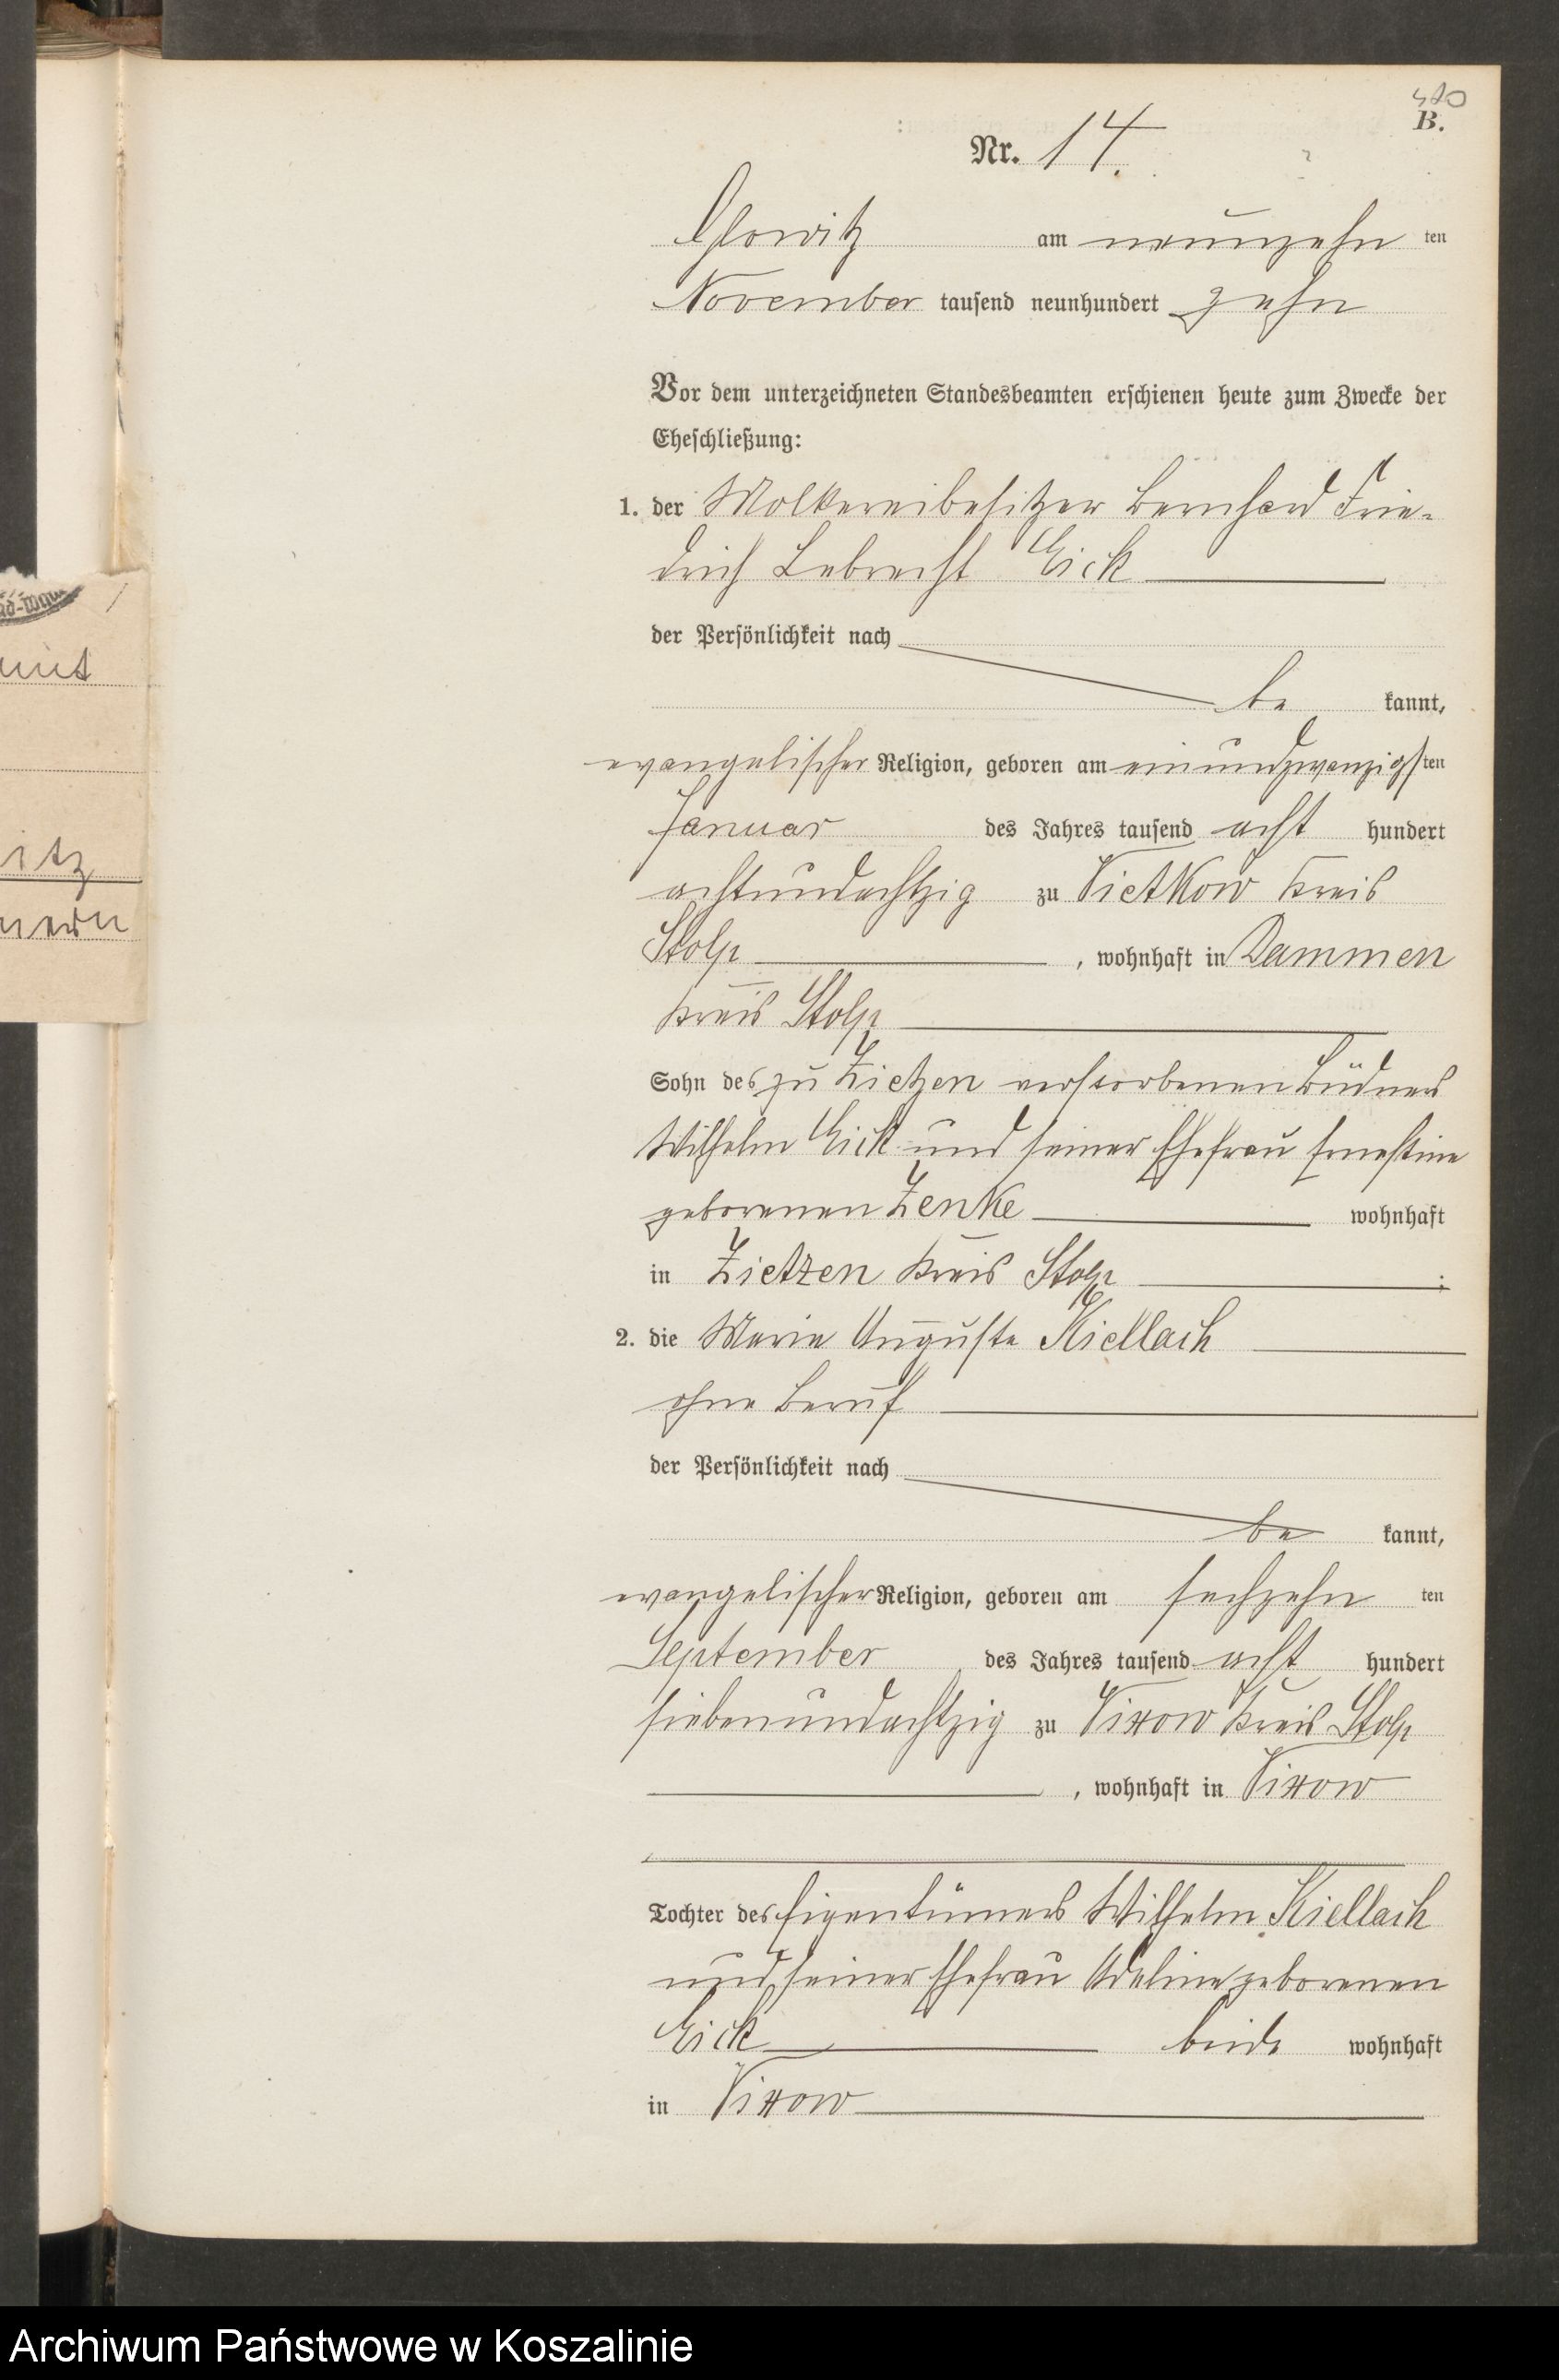 B.
Nr. 14.
Glowitz am neunzehn ten
November tausend neunhundert zehn
Vor dem unterzeichneten Standesbeamten erschienen heute zum Zwecke der
Eheschließung:
1. der Molkereibesitzer Bernhard Frie-
drich Lebrecht Eick
der Persönlichkeit nach
be kannt,
evangelischer Religion, geboren am einundzwanzigsten
Januar des Jahres tausend acht hundert
achtundachtzig zu Vietkow Kreis
Stolp, wohnhaft in Dammen
Kreis Stolp
Sohn des zu Zietzen verstorbenen Büdners
Wilhelm Eick und seiner Ehefrau Ernestine
geborenen Zenke wohnhaft
in Zietzen Kreis Stolp;
2. die Marie Auguste Kiellach
ohne Beruf
der Persönlichkeit nach
be kannt,
evangelischer Religion, geboren am sechzehn ten
September des Jahres tausend acht hundert
siebenundachtzig zu Vixow Kreis Stolp
, wohnhaft in Vixow
Tochter des Eigentümers Wilhelm Kiellach
und seiner Ehefrau Adeline geborenen
Eick beide wohnhaft
in Vixow
Archiwum Państwowe w Koszalinie